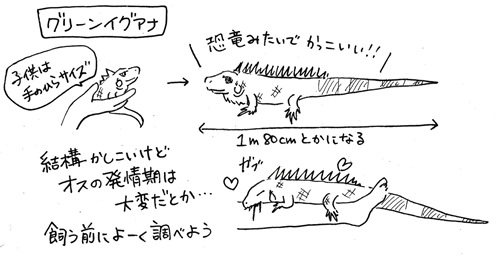 グリーンイグアナ
恐竜みたいで かっこいい!!
子供は
手のひらサイズ
1m80cmとかになる
結構かしこいけど
オスの発情期は
大変だとか…
ガブ
飼う前によーく調べよう